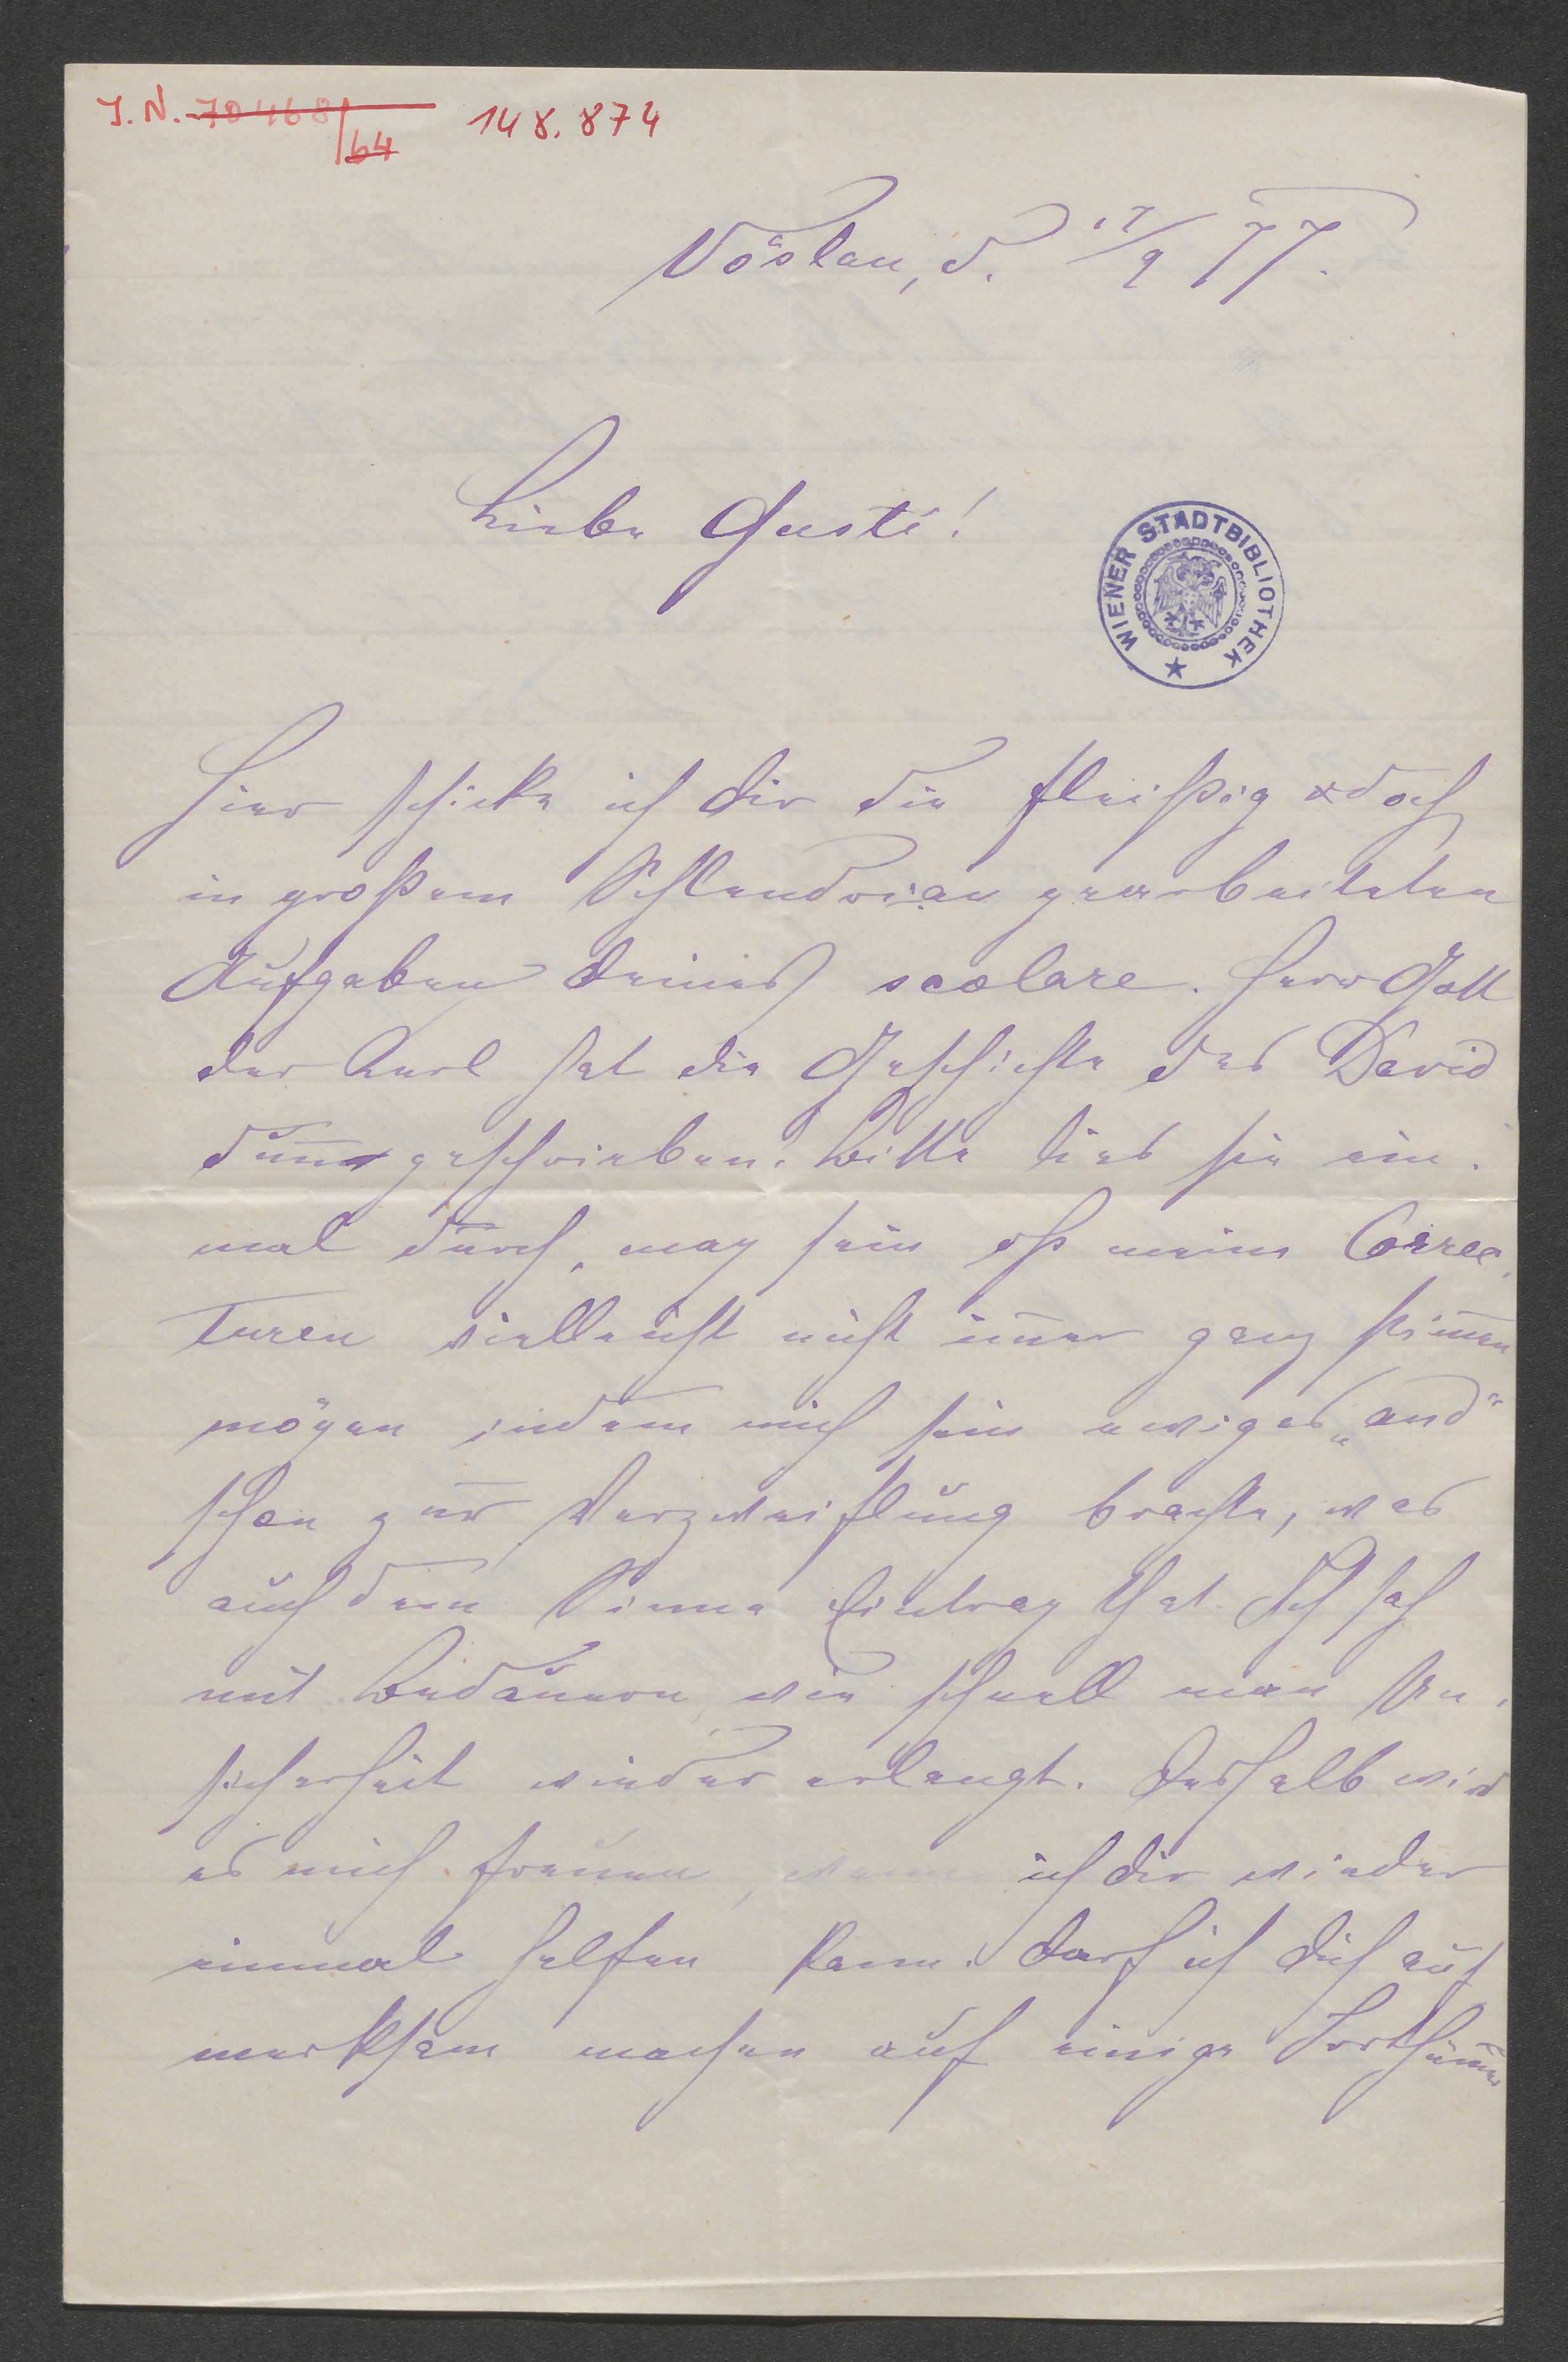 J. N. 70468/64 148.874
Vöslau, d. 17/9 77.
Liebe Gusti!
WIENER STADTBIBLIOTHEK
Hier schicke ich dir die fleißig & doch
in großem Schlendrian gearbeiteten
Aufgaben deines scolare. Herr Gott
der Kerl hat die Geschichte des David
dumm geschrieben. Bitte lies sie ein-
mal durch, mag sein dß meine Correc-
turen vielleicht nicht im̅er ganz stim̅en
mögen indem mich sein ewiges „and"
schon zur Verzweiflung brachte, was
auch dem Sinne Eintrag that. Ich sah
mit Bedauern, wie schnell man Un-
sicherheit wieder erlangt. Deshalb wird
es mich freuen, wenn ich dir wieder
einmal helfen kann. Darf ich dich auf
merksam machen auf einige Irrthüm̅er